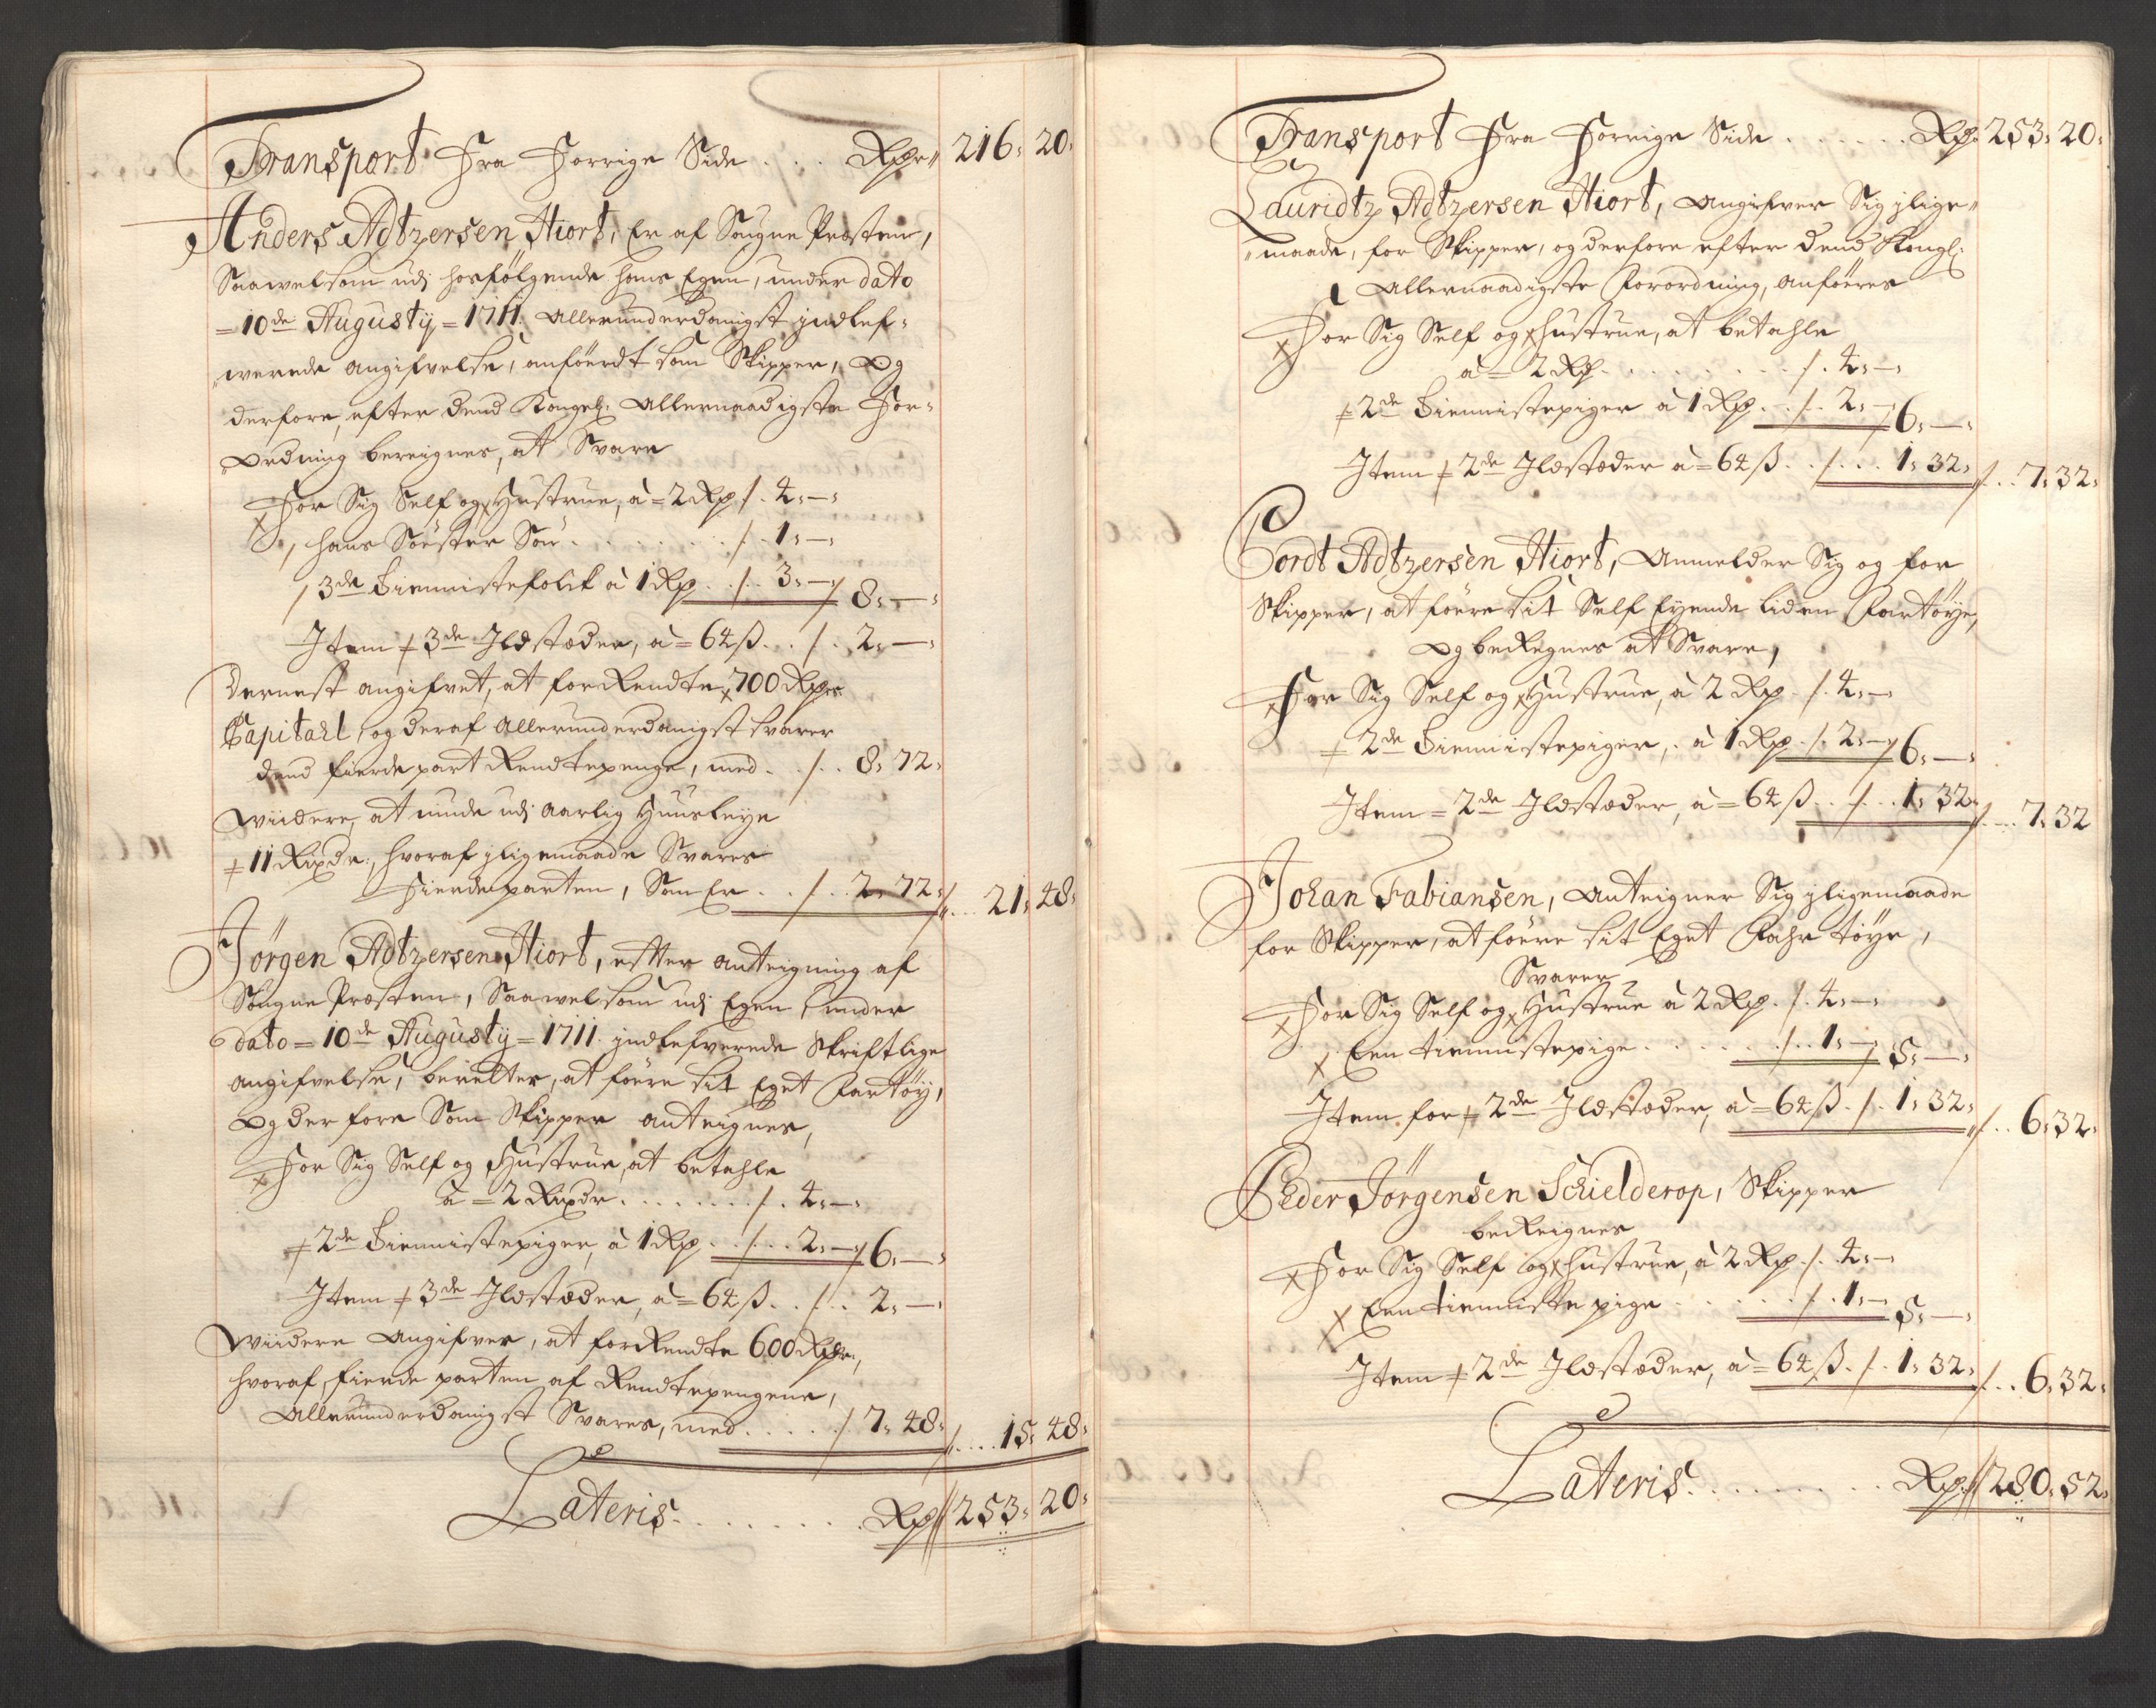 Transport fra forrige Side . . . Rdr 216: 20:
Anders Adtzersen Hiort, Er af Sougne Præsten,
Saawelsom udj hosfølgende hans Egen, under dato
=10de Augusty=1711. Allerunderdanigst jndlef=
werede angifvelse, anføerdt som Skipper, og
derfore, efter dend Kongel: Allernaadigste For=
ordning bereignes, at Svare
For Sig Self og Hustrue, à=2 Rd /. 4:—:
hans Søster Søn . . . . . /. 1:—:
3de Tienniste folck à 1 Rd . /. 3:—/ 8:—:
Item 3de Ildstæder, à=64 ß . . /. 2:—:
Dernest angifvet, at forRendte 700 Rdr
Capitael, og deraf Allerunderdanigst svarer
dend fierde part Rendtepenge, med . . /. . 8: 72:
Wiidere, at nyde udj aarlig Huusleye
11 Rixdr:, hvoraf jligemaade Svares
Fierdeparten, Som Er . . /. . 2: 72: /. . . 21: 48:
Jørgen Adtzersen Hiort, efter anteigning af
Sougne Præsten, Saawelsom udj Egen under
dato=10de Augusty=1711. jndlefverede Skriftlige
angifvelse, berettes, at føere sit Eget Fartøy,
og derfore Som Skipper anteignes,
For Sig Self og Hustrue, at betahle
à=2 Rixdr . . . . . . . /. 4:—:
2de Tiennistepiger, à 1 Rd . . /. . . 2:—/ 6:—:
Item 3de Ildstæder, à=64 ß . . /. . 2:—:
Wiidere Angifves, at forRendte 600 Rdr:,
hvoraf, fierde parten af Rendtepengene,
Allerunderdanigst Svares, med . . . . . / 7: 48: /. . . . 15: 48:
Lateris . . . . . . . Rd// 253: 20:
Transport fra forrige Side . . . . . . Rd: 253: 20:
Lauridtz Adtzersen Hiort, Angifver Sig jlige=
maade, for Skipper, og derfore efter dend Kongl:
Allernaadigste Forordning, anføeres
For Sig Self og hustrue, at betahle
à=2 Rd . . . . . . . . /. 4:—:
2de Tiennistepiger à 1 Rd . . /. . 2:—/ 6:—:
Item 2de Ildstæder à=64 ß . . /. . . 1: 32: /. . 7: 32:
Cordt Adtzersen Hiort, Anmelder Sig og for
Skipper, at føere sit Self Eyende liden Fartøye,
og beRegnes at Svare,
For Sig Self og Hustrue, à 2 Rd . /. 4:—
2de Tiennistepiger, à 1 Rd . /. 2:—/ 6:—:
Item=2de Ildstæder, à=64 ß . . /. . . 1: 32: /. . . 7: 32
Johan Fabiansen, Anteigner Sig jligemaade
for Skipper, at føere sit Eget Fahr tøye,
Svarer
For Sig Self og Hustrue à 2 Rd . /. 4:—:
Een tiennistepige . . . . . . . /. . 1:—/ 5:—:
Item for 2de Ildstæder, à=64 ß . /. 1: 32: /. . 6: 32:
Peder Jørgensen Schielderop, Skipper
beReignes
For Sig Self og hustrue, à 2 Rd . /. 4:—
Een tienniste pige . . . . . . /. 1:— 5:—:
Item 2de Ildstæder, à=64 ß . /. 1: 32: /. . 6: 32:
Lateris . . . . . . . . . Rd// 280: 52: